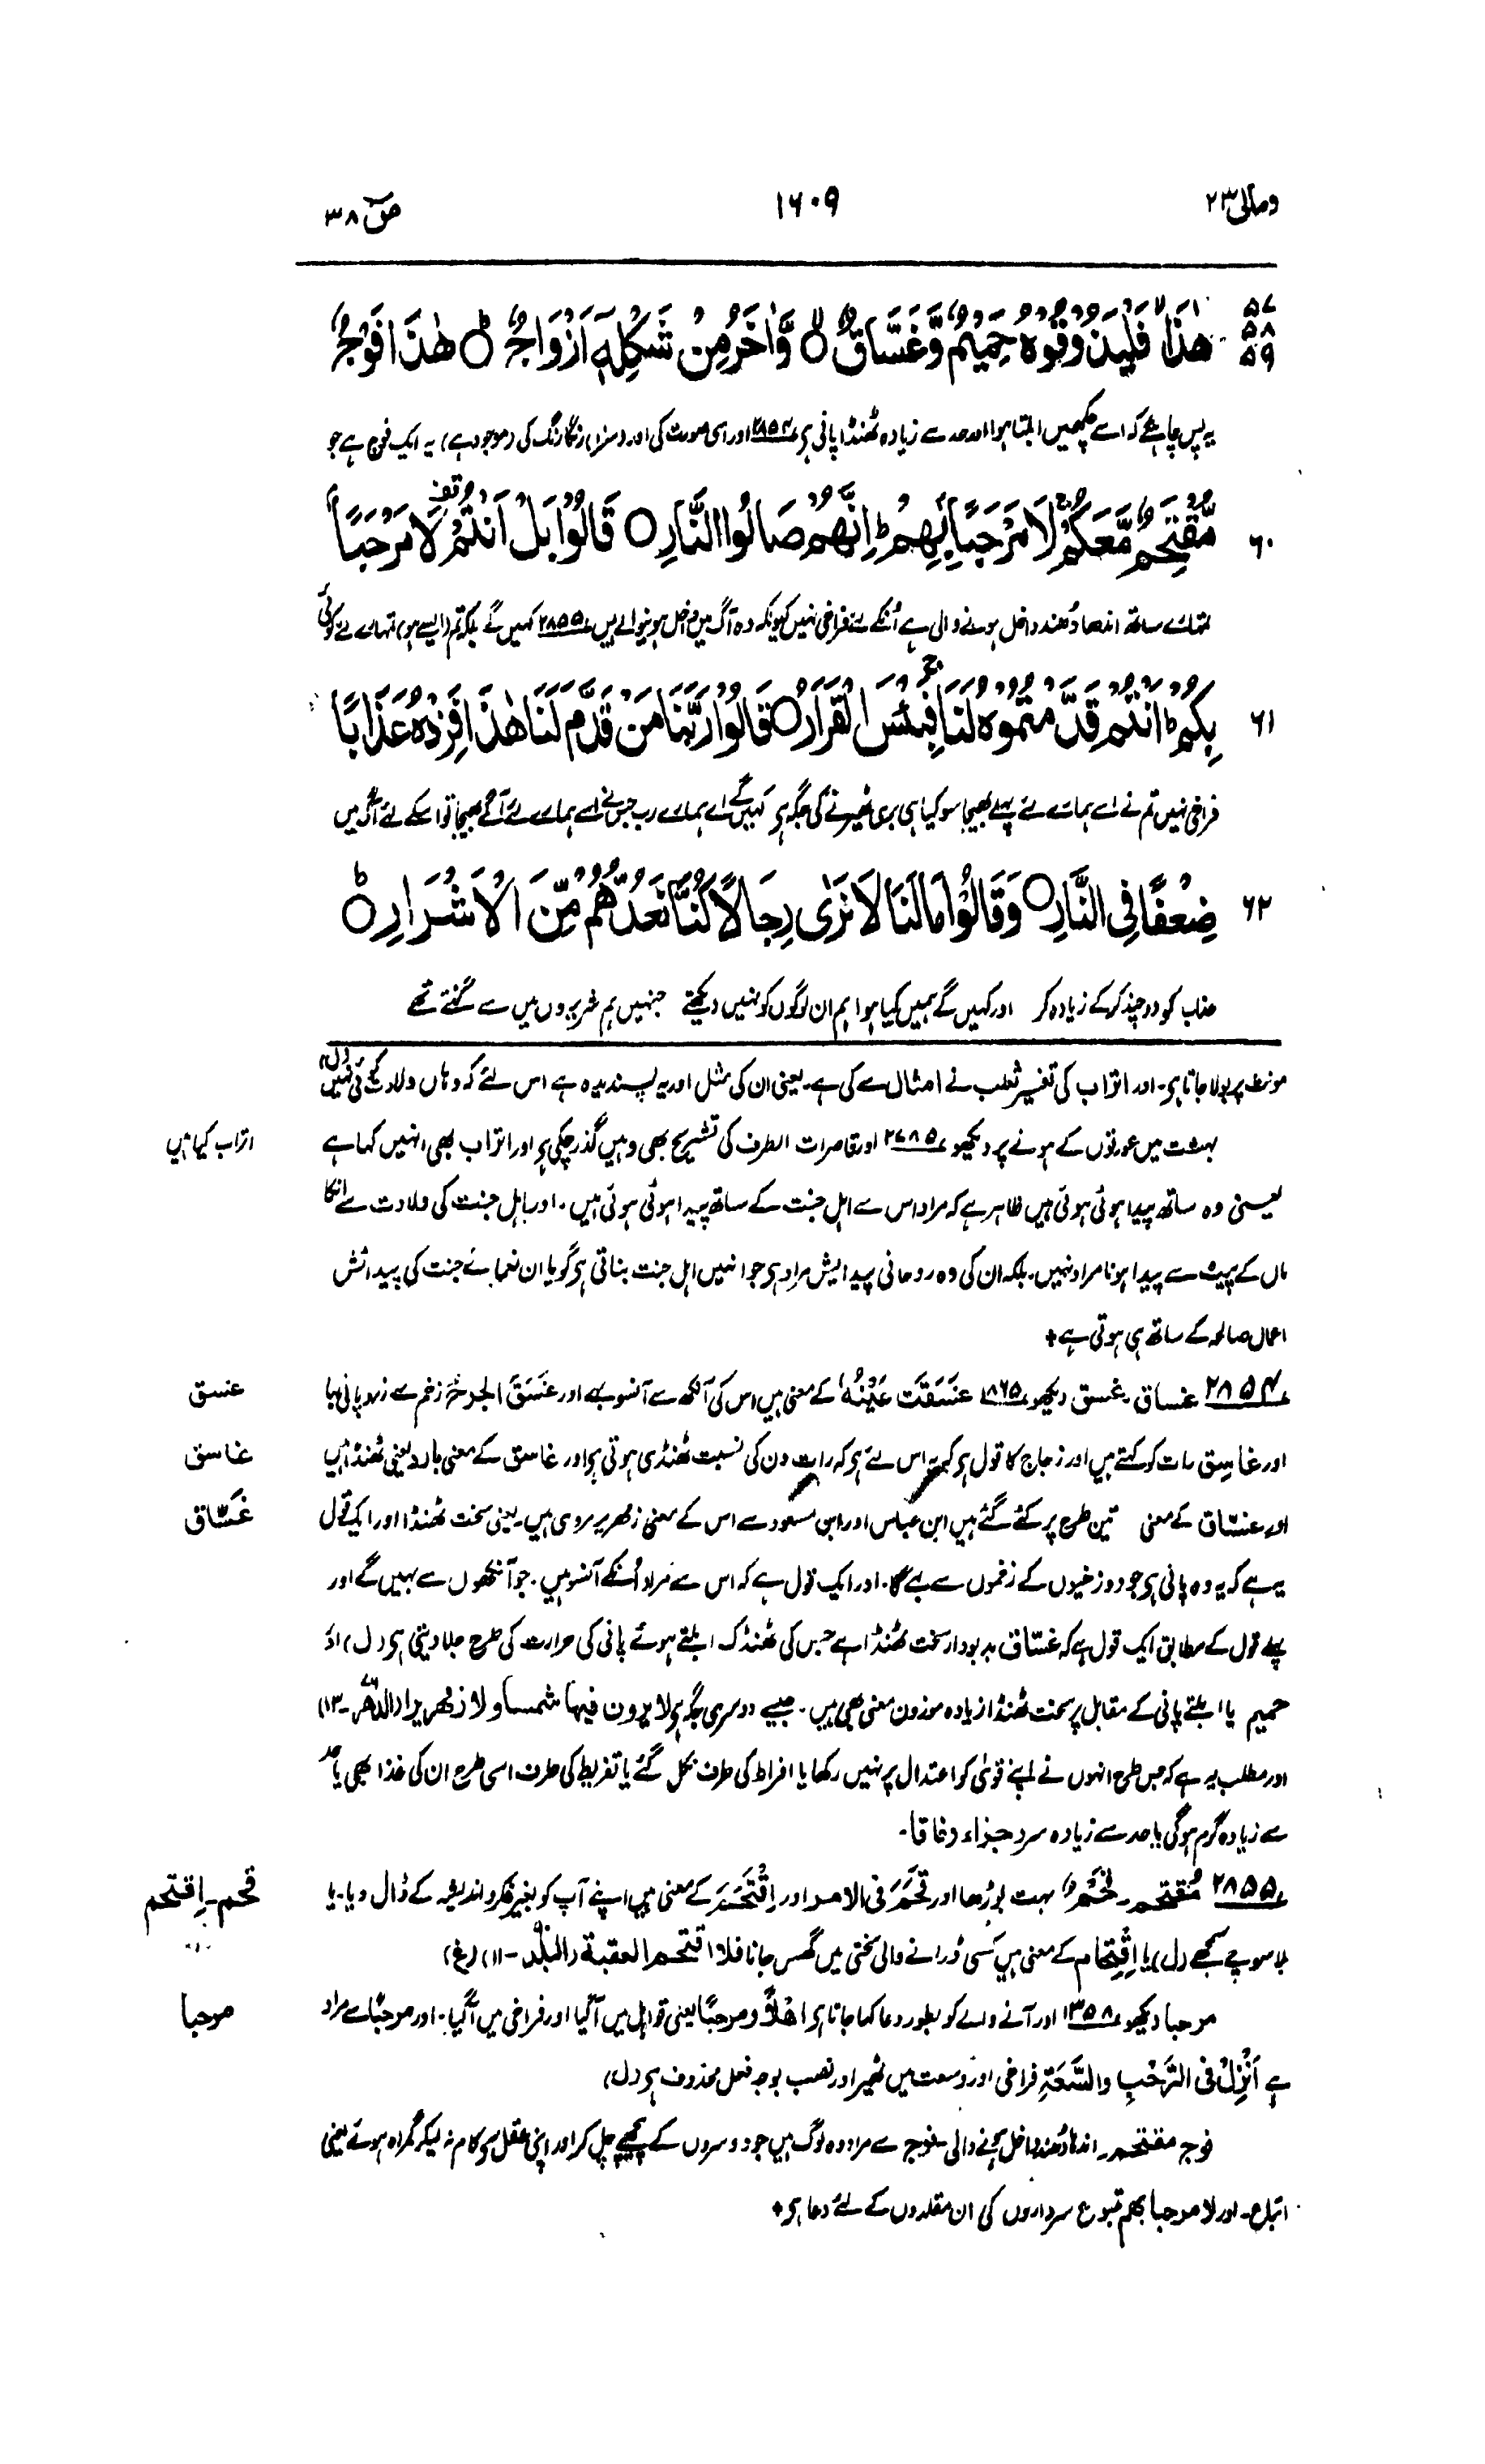 ومالی ۲۳
۱۶۰۹
صٓ ۳۸
۵۷
۵۸
۵۹
هٰذَا فَلْیَذُوْقُوْهُ حَمِیْمٌ وَّغَسَّاقٌ ۙ وَّاٰخَرُ مِنْ شَكْلِهٖۤ اَزْوَاجٌ ؕ هٰذَا فَوْجٌ
یہ پس چاہئے کہ اسے چکھیں ابلتا ہوا اور حد سے زیادہ ٹھنڈا پانی ہر ۲۸۵۴ اور اسی صورت کی اور (سزا) رنگا رنگ کی (موجود ہے) یہ ایک فوج ہے جو
۶۰
مُّقْتَحِمٌ مَّعَكُمْ ۚ لَا مَرْحَبًۢا بِهِمْ ؕ اِنَّهُمْ صَالُوا النَّارِ قَالُوْا بَلْ اَنْتُمْ ۫ لَا مَرْحَبًۢا
تمہارے ساتھ اندھا دُھند داخل ہونے والی ہے اُنکے لئے فراخی نہیں کیونکہ وہ آگ میں داخل ہونیوالے ہیں ۲۸۵۵ کہیں گے بلکہ تم (ایسے ہو) تمہارے لئے کوئی
۶۱
بِكُمْ ؕ اَنْتُمْ قَدَّمْتُمُوْهُ لَنَا ۚ فَبِئْسَ الْقَرَارُ قَالُوْا رَبَّنَا مَنْ قَدَّمَ لَنَا هٰذَا فَزِدْهُ عَذَابًا
فراخی نہیں تم نے اسے ہمارے لئے پہلے بھیجا سو کیا ہی بری ٹھیرنے کی جگہ ہر کہیں گے اے ہمارے رب جس نے اسے ہمارے لئے آگے بھیجا تو اسکے لئے آگ میں
۶۲
ضِعْفًا فِی النَّارِ وَقَالُوْا مَا لَنَا لَا نَرٰى رِجَالًا كُنَّا نَعُدُّهُمْ مِّنَ الْاَشْرَارِ ؕ
عذاب کو دو چند کر کے زیادہ کر اور کہیں گے ہمیں کیا ہوا ہم ان لوگوں کو نہیں دیکھتے جنہیں ہم شریروں میں سے گنتے تھے
مونث پر بولا جاتا ہر۔ اور اتراب کی تفسیر ثعلب نے امثال سے کی ہے۔ یعنی ان کی مثل اور یہ پسندیدہ ہے اس لئے کہ وہاں ولادت کوئی نہیں (ل)
بہشت میں عورتوں کے ہونے پر دیکھو ۲۷۸۵ اور قاصرات الطرف کی تشریح بھی وہیں گذر چکی ہر اور اتراب بھی انہیں کہا ہے
اتراب کیا ہیں
یعنی وہ ساتھ پیدا ہوئی ہوئی ہیں ظاہر ہے کہ مراد اس سے اہل جنت کے ساتھ پیدا ہوئی ہوئی ہیں۔ اور اہل جنت کی ولادت سے انکا
ماں کے پیٹ سے پیدا ہونا مراد نہیں۔ بلکہ ان کی وہ روحانی پیدایش مراد ہر جو انہیں اہل جنت بناتی ہر گویا ان نعمائے جنت کی پیدائش
اعمال صالحہ کے ساتھ ہی ہوتی ہے +
۲۸۵۴ غساق۔ غسق دیکھو ۱۸۶۵ غَسَقَت عَیْنُهُ کے معنی ہیں اس کی آنکھ سے آنسو بہے اور غَسَقَ الجرحُ زخم سے زرد پانی بہا
غسق
اور غَاسِق رات کو کہتے ہیں اور زجاج کا قول ہر کہ یہ اس لئے ہر کہ رات دن کی نسبت ٹھنڈی ہوتی ہر اور غاسق کے معنی بارد یعنی ٹھنڈا ہیں
غاسق
اور غسّاق کے معنی تین طرح پر کئے گئے ہیں ابن عباس اور ابن مسعود سے اس کے معنی زمہریر مروی ہیں۔ یعنی سخت ٹھنڈا اور ایک قول
غَسَّاق
یہ ہے کہ یہ وہ پانی ہر جو دوزخیوں کے زخموں سے بہے گا۔ اور ایک قول ہے کہ اس سے مراد اُنکے آنسو ہیں۔ جو آنکھوں سے بہیں گے اور
پہلے قول کے مطابق ایک قول ہے کہ غسّاق بدبودار سخت ٹھنڈا ہے جس کی ٹھنڈک ابلتے ہوئے پانی کی حرارت کی طرح جلا دیتی ہر (ل) اور
حمیم یا ابلتے پانی کے مقابل پر سخت ٹھنڈا زیادہ موزون معنی بھی ہیں۔ جیسے دوسری جگہ ہر لا یرون فیها شمسا ولا زمهریرا (الدهر۔۱۳)
اور مطلب یہ ہے کہ جس طرح انہوں نے اپنے قویٰ کو اعتدال پر نہیں رکھا یا افراط کی طرف نکل گئے یا تفریط کی طرف اسی طرح ان کی غذا بھی یا حد
سے زیادہ گرم ہوگی یا حد سے زیادہ سرد جزاء وفاقا۔
۲۸۵۵ مُقتحم۔ قَحْم بہت بوڑھا اور تَحَّمَ فی الامر اور اِقْتَحَمَ کے معنی ہیں اپنے آپ کو بغیر فکر و اندیشہ کے ڈال دیا۔ یا
قحم۔ اِقتحم
بلا سوچے سمجھے (ل) یا اِقْتِحَام کے معنی ہیں کسی ڈرانے والی سختی میں گھس جانا فلا اقتحم العقبة (البلد۔۱۱) (غ)
مرحبا دیکھو ۱۳۵۸ اور آنے والے کو بطور دعا کہا جاتا ہر اھلًا و مرحبًا یعنی تو اہل میں آگیا اور فراخی میں آگیا۔ اور مرحبًا سے مراد
مرحبا
ہے اَنْزِلْ فی الرَّحْبِ والسَّعَةِ فراخی اور وسعت میں ٹھیر اور نصب بوجہ فعل محذوف ہر (ل)
فوج مقتحم۔ اندھا دُھند داخل ہونے والی فوج سے مراد وہ لوگ ہیں جو دوسروں کے پیچھے چل کر اور اپنی عقل سے کام نہ لیکر گمراہ ہوئے یعنی
اتباع۔ اور لا مرحبا بهم متبوع سرداروں کی ان مقلدوں کے لئے دعا ہر +